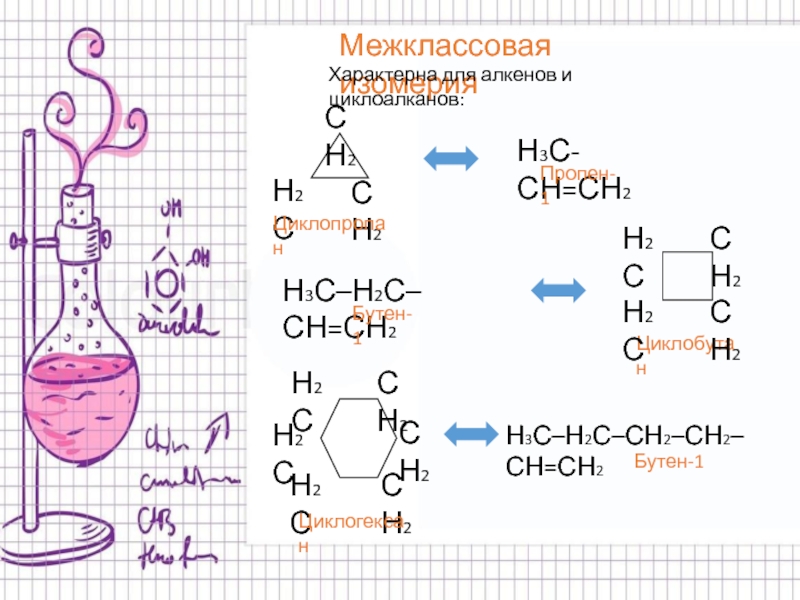 Межклассовая
изомерия
Характерна для алкенов и
циклоалканов:
C
H2
H2
C
C
H2
Циклопропа
н
H3C-
CH=CH2
Пропен-
1
H3C–H2C–
CH=CH2
Бутен-
1
H2
C
C
H2
H2
C
C
H2
Циклобута
н
H2
C
C
H2
H2
C
C
H2
H2
C
C
H2
Циклогекса
н
H3C–H2C–CH2–CH2–
CH=CH2
Бутен-1
OH
OH